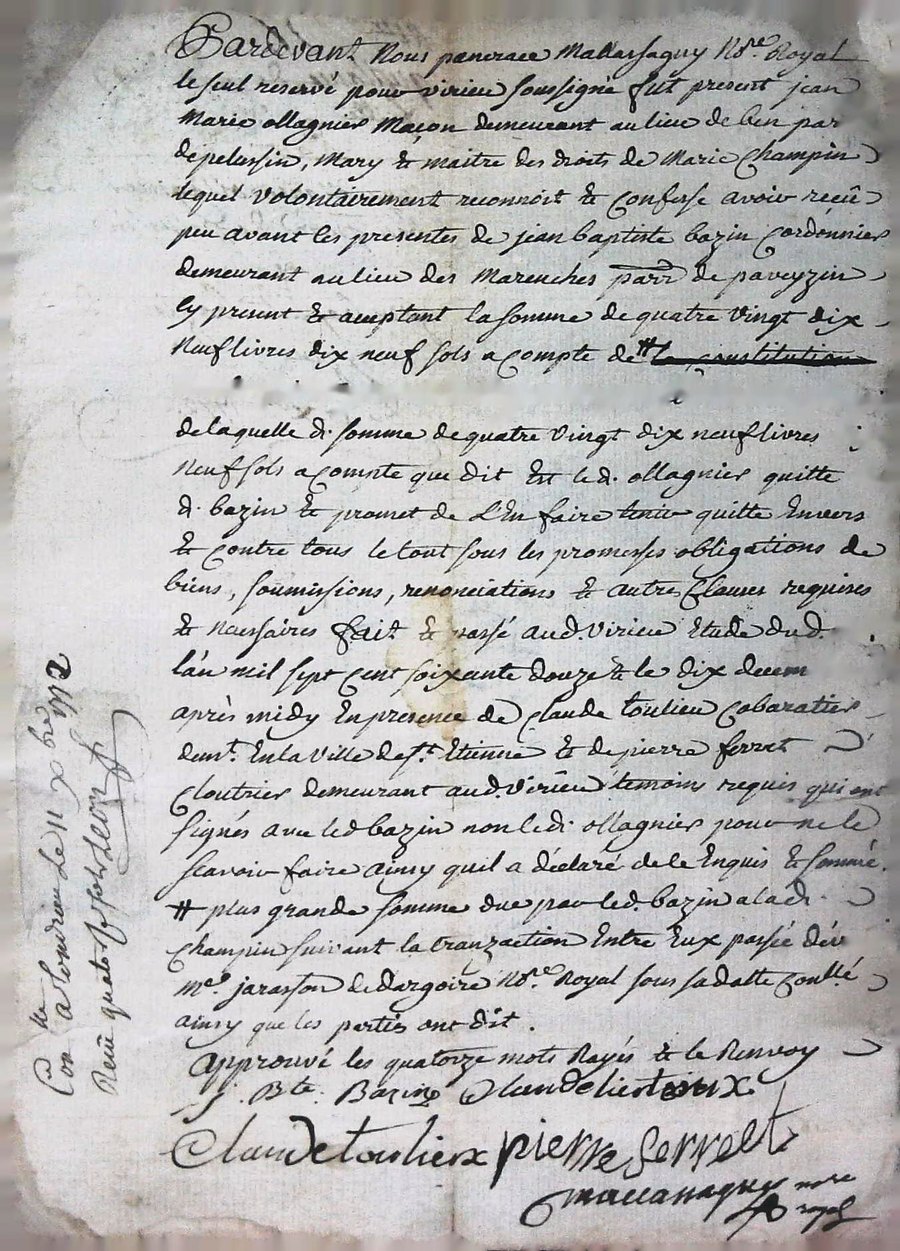 Pardevant Nous pancrace Mallassagny No.re Royal
le seul reservé pour virieu soussigné fut present jean
Marie ollagnier Maçon demeurant au lieu de ben par
de pelussin, Mary & maitre des droits de Marie Champin
lequel volontairement reconnoit & Confesse avoir reçeû
peu avant les presentes de jean baptiste bazin Cordonnier
demeurant au lieu des Mareuches parr de paveyzin
Cy present & aceptant la somme de quatre vingt dix
Neuf livres dix neuf sols a compte de # la constitution
de laquelle d. somme de quatre vingt dix neuf livres
neuf sols a compte que dit Est led. ollagnier quitte
d. bazin & promet de L'En faire tenir quitte Envers
& contre tous le tout sous les promesses obligations de
biens, soumissions, renonciations & autre Clauses requises
& necessaires fait & passé aud. virieu Etude dud.
l'an mil sept cent soixante douze & le dix decem
après midy En presence de Claude toulieu Cabaratier
dem.t En la ville de s.t Etienne & de pierre ferret
Cloutrier demeurant aud. virieu temoins requis qui ont
signés avec led bazin non led. ollagnier pour ne le
scavoir faire ainsy qu'il a déclaré de le Enquis & sommé.
# plus grande somme due par led. bazin a lad.
Champin suivant la tranzaction Entre Eux passée dev
m.e jarasson de dargoire No.re Royal sous sa datte
ainsy que les parties ont dit.
approuvé les quatorze mots Rayés & le Renvoy
j. Bte. Bazin
Claude toulieux pierre ferrett
mallassagny nore
royal
Con.lle a Condrieu le 11 Xbre 1772
Reçu quatorze sols